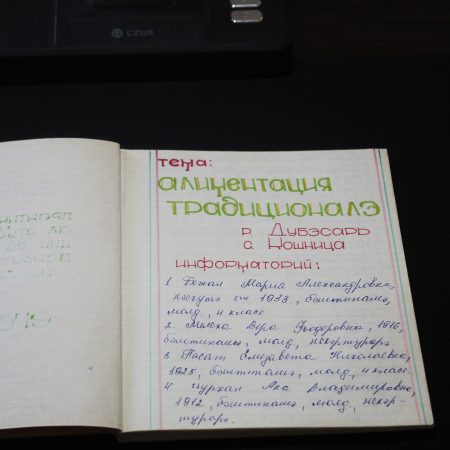 CZUR
тема:
алиментация
традиционалэ
р. Дубэсарь
с. Кошница
информаторий:
1. Бежал Мария Александровна,
нэскутэ ын 1933, баштинашэ,
молд., 4 класе
2. Вера Фёдоровна, 1916,
баштинашэ, молд.,
3. Пасат Елизавета Николаевна,
1925, баштинашэ, молд., 4 класе.
4. Цуркан Ана Владимировна,
1912, баштинашэ, молд.,